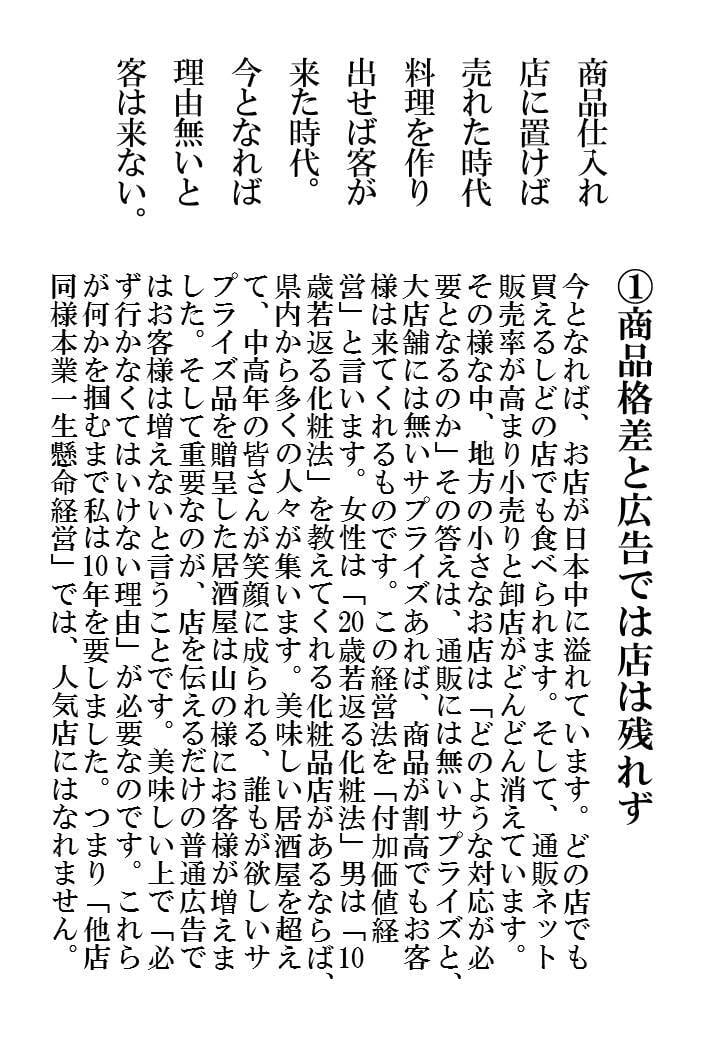 商品仕入れ
店に置けば
売れた時代
料理を作り
出せば客が
来た時代。
今となれば
理由無いと
客は来ない。
①商品格差と広告では店は残れず
今となれば、お店が日本中に溢れています。どの店でも
買えるしどの店でも食べられます。そして、通販ネット
販売率が高まり小売りと卸店がどんどん消えています。
その様な中、地方の小さなお店は「どのような対応が必
要となるのか」その答えは、通販には無いサプライズと、
大店舗には無いサプライズあれば、商品が割高でもお客
様は来てくれるものです。この経営法を「付加価値経
営」と言います。女性は「20歳若返る化粧法」男は「10
歳若返る化粧法」を教えてくれる化粧品店があるならば、
県内から多くの人々が集います。美味しい居酒屋を超え
て、中高年の皆さんが笑顔に成られる、誰もが欲しいサ
プライズ品を贈呈した居酒屋は山の様にお客様が増えま
した。そして重要なのが、店を伝えるだけの普通広告で
はお客様は増えないと言うことです。美味しい上で「必
ず行かなくてはいけない理由」が必要なのです。これら
が何かを掴むまで私は10年を要しました。つまり「他店
同様本業一生懸命経営」では、人気店にはなれません。